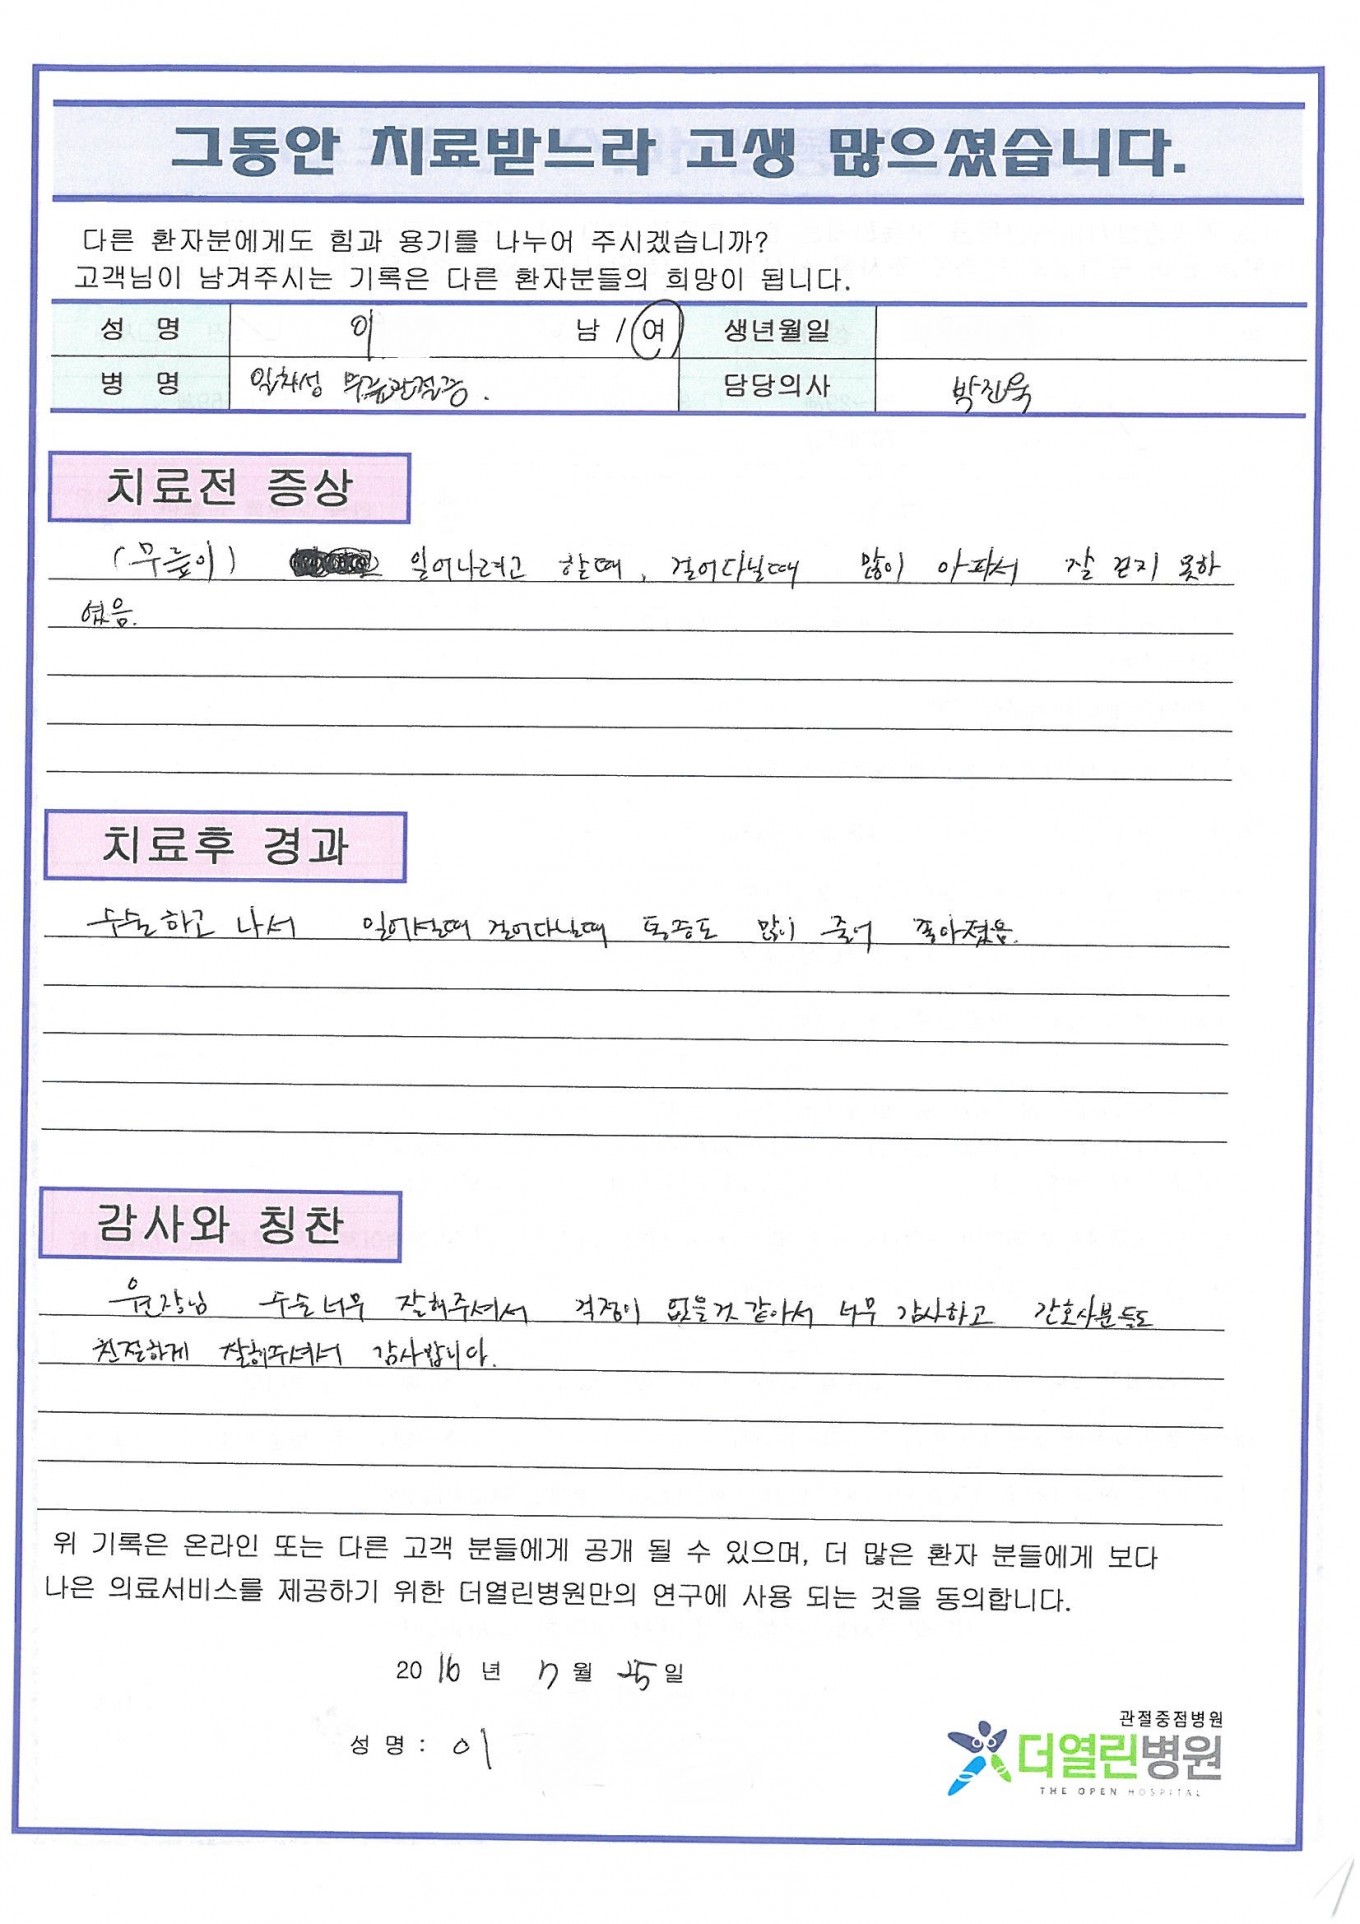 그동안 치료받느라 고생 많으셨습니다.
다른 환자분에게도 힘과 용기를 나누어 주시겠습니까?
고객님이 남겨주시는 기록은 다른 환자분들의 희망이 됩니다.
성 명 이 남 / 여 생년월일
병 명 일차성 무릎관절증. 담당의사 박진욱
치료전 증상
(무릎이) 일어나려고 할때, 걸어다닐때 많이 아파서 잘 걷지 못하
였음.
치료후 경과
수술하고 나서 일어설때 걸어다닐때 통증도 많이 줄어 좋아졌음.
감사와 칭찬
원장님 수술너무 잘해주셔서 걱정이 없을것 같아서 너무 감사하고 간호사분들도
친절하게 잘해주셔서 감사합니다.
위 기록은 온라인 또는 다른 고객 분들에게 공개 될 수 있으며, 더 많은 환자 분들에게 보다
나은 의료서비스를 제공하기 위한 더열린병원만의 연구에 사용 되는 것을 동의합니다.
2016 년 월 25일
성 명 : 이
관절중점병원
더열린병원
THE OPEN HOSPITAL